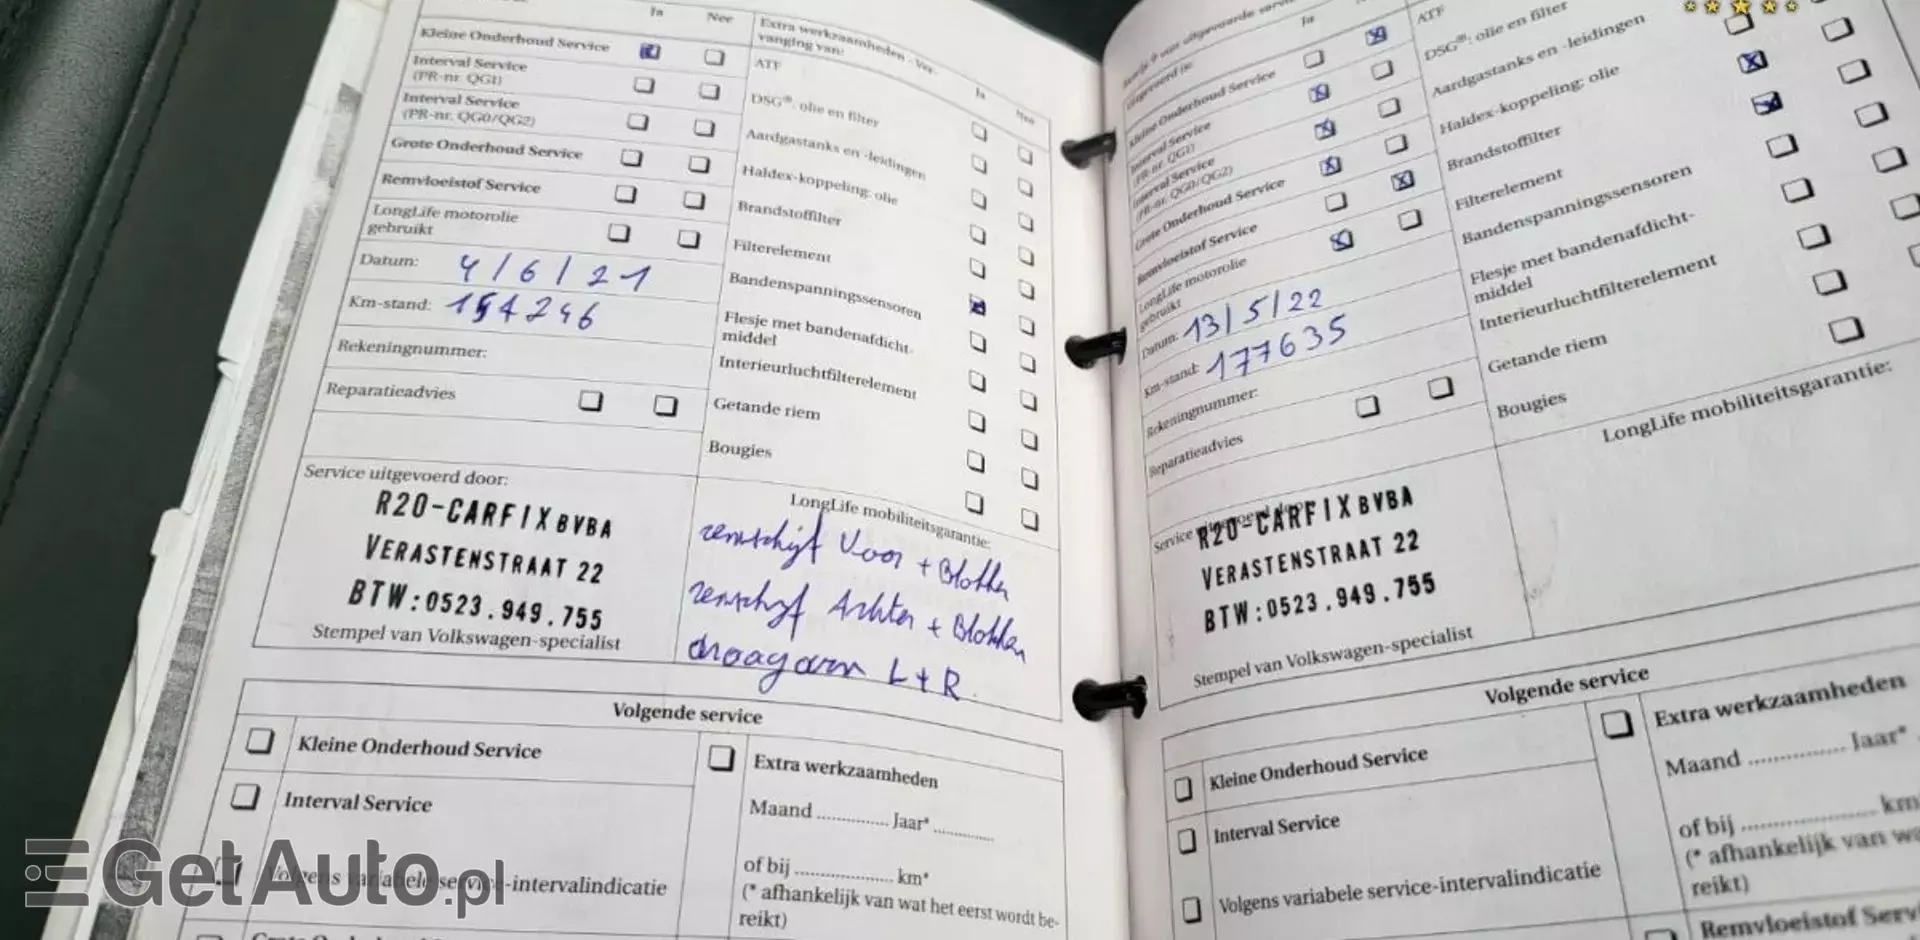 Ja Nee
Kleine Onderhoud Service
Interval Service
(PR-nr. QG1)
Interval Service
(PR-nr. QG0/QG2)
Grote Onderhoud Service
Remvloeistof Service
LongLife motorolie
gebruikt
Datum: 4/6/21
Km-stand: 154246
Rekeningnummer:
Reparatieadvies
Service uitgevoerd door:
R20-CARFIX BVBA
VERASTENSTRAAT 22
BTW:0523.949.755
Stempel van Volkswagen-specialist
Extra werkzaamheden - Ver-
vanging van:
Ja Nee
ATF
DSG®: olie en filter
Aardgastanks en -leidingen
Haldex-koppeling: olie
Brandstoffilter
Filterelement
Bandenspanningssensoren
Flesje met bandenafdicht-
middel
Interieurluchtfilterelement
Getande riem
Bougies
LongLife mobiliteitsgarantie:
remschijf Voor + Blokken
remschijf Achter + Blokken
draagarm L+R
Volgende service
Kleine Onderhoud Service
Interval Service
Volgens variabele service-intervalindicatie
Extra werkzaamheden
Maand Jaar*
of bij km*
(* afhankelijk van wat het eerst wordt be-
reikt)
Ja
Kleine Onderhoud Service
Interval Service
(PR-nr. QG1)
Interval Service
(PR-nr. QG0/QG2)
Grote Onderhoud Service
Remvloeistof Service
LongLife motorolie
gebruikt
Datum: 13/5/22
Km-stand: 177635
Rekeningnummer:
Reparatieadvies
Service
R20-CARFIX BVBA
VERASTENSTRAAT 22
BTW:0523.949.755
Stempel van Volkswagen-specialist
ATF
DSG®: olie en filter
Aardgastanks en -leidingen
Haldex-koppeling: olie
Brandstoffilter
Filterelement
Bandenspanningssensoren
Flesje met bandenafdicht-
middel
Interieurluchtfilterelement
Getande riem
Bougies
LongLife mobiliteitsgarantie:
Volgende service
Kleine Onderhoud Service
Interval Service
Volgens variabele service-intervalindicatie
Extra werkzaamheden
Maand Jaar*
of bij km
(* afhankelijk van
reikt)
Remvloeistof
GetAuto.pl